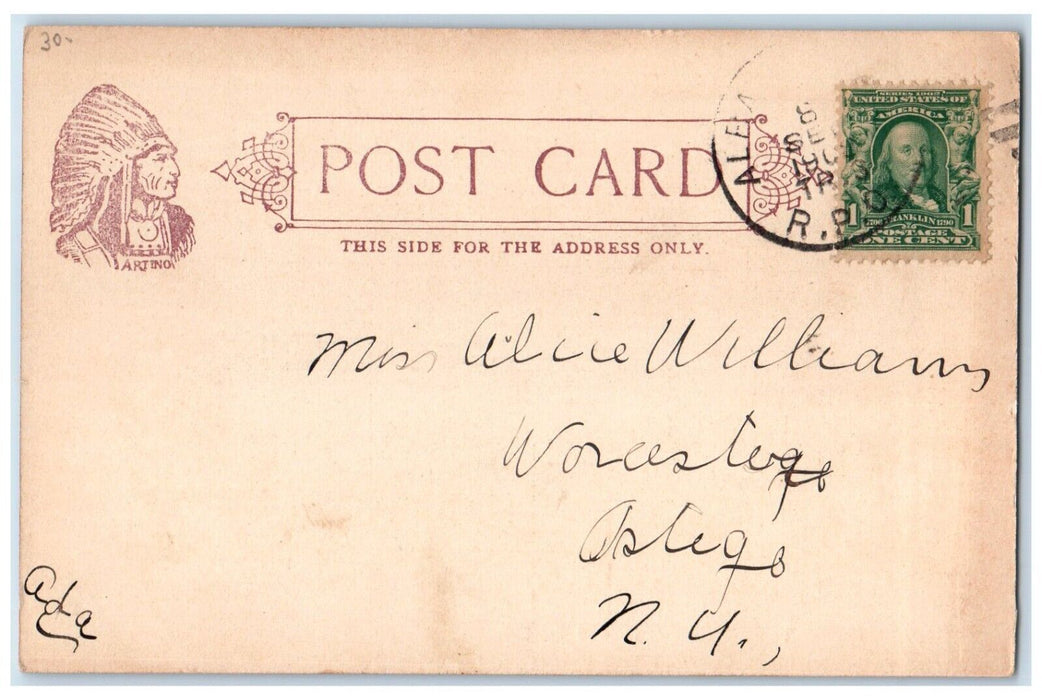 30-
POST CARD
THIS SIDE FOR THE ADDRESS ONLY.
ARTINO
SERIES 1902
UNITED STATES OF
AMERICA
1 1706 FRANKLIN 1790 1
POSTAGE
ONE CENT
R.P.O.
Miss Alice Williams
Worcester
Ostego
N. Y.,
Ada